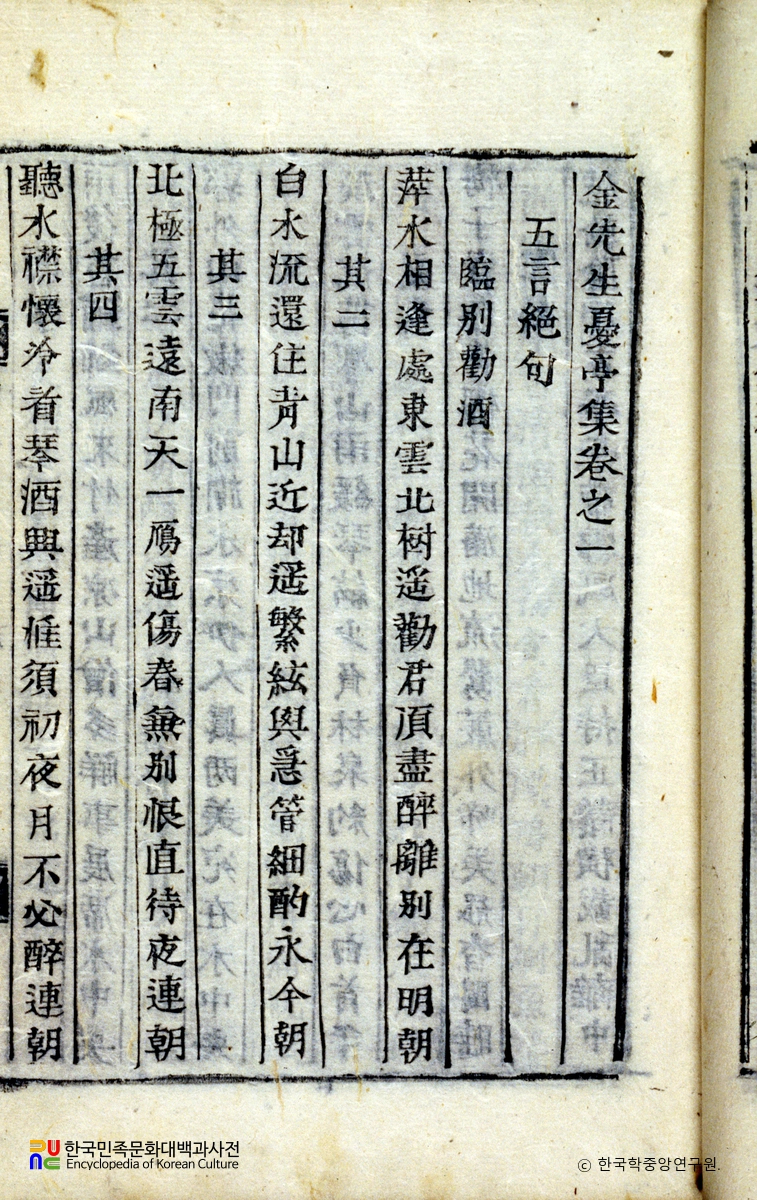 金先生憂亭集卷之一
五言絕句
臨別勸酒
萍水相逢處東雲北樹遥勸君湏盡醉離別在明朝
其二
白水流還住靑山近却遥繁絃與急管細酌永今朝
其三
北極五雲遠南天一鴈遥傷春兼別恨直待夜連朝
其四
聽水襟懷冷看琴酒興遥惟須初夜月不必醉連朝
한국민족문화대백과사전
Encyclopedia of Korean Culture
© 한국학중앙연구원.